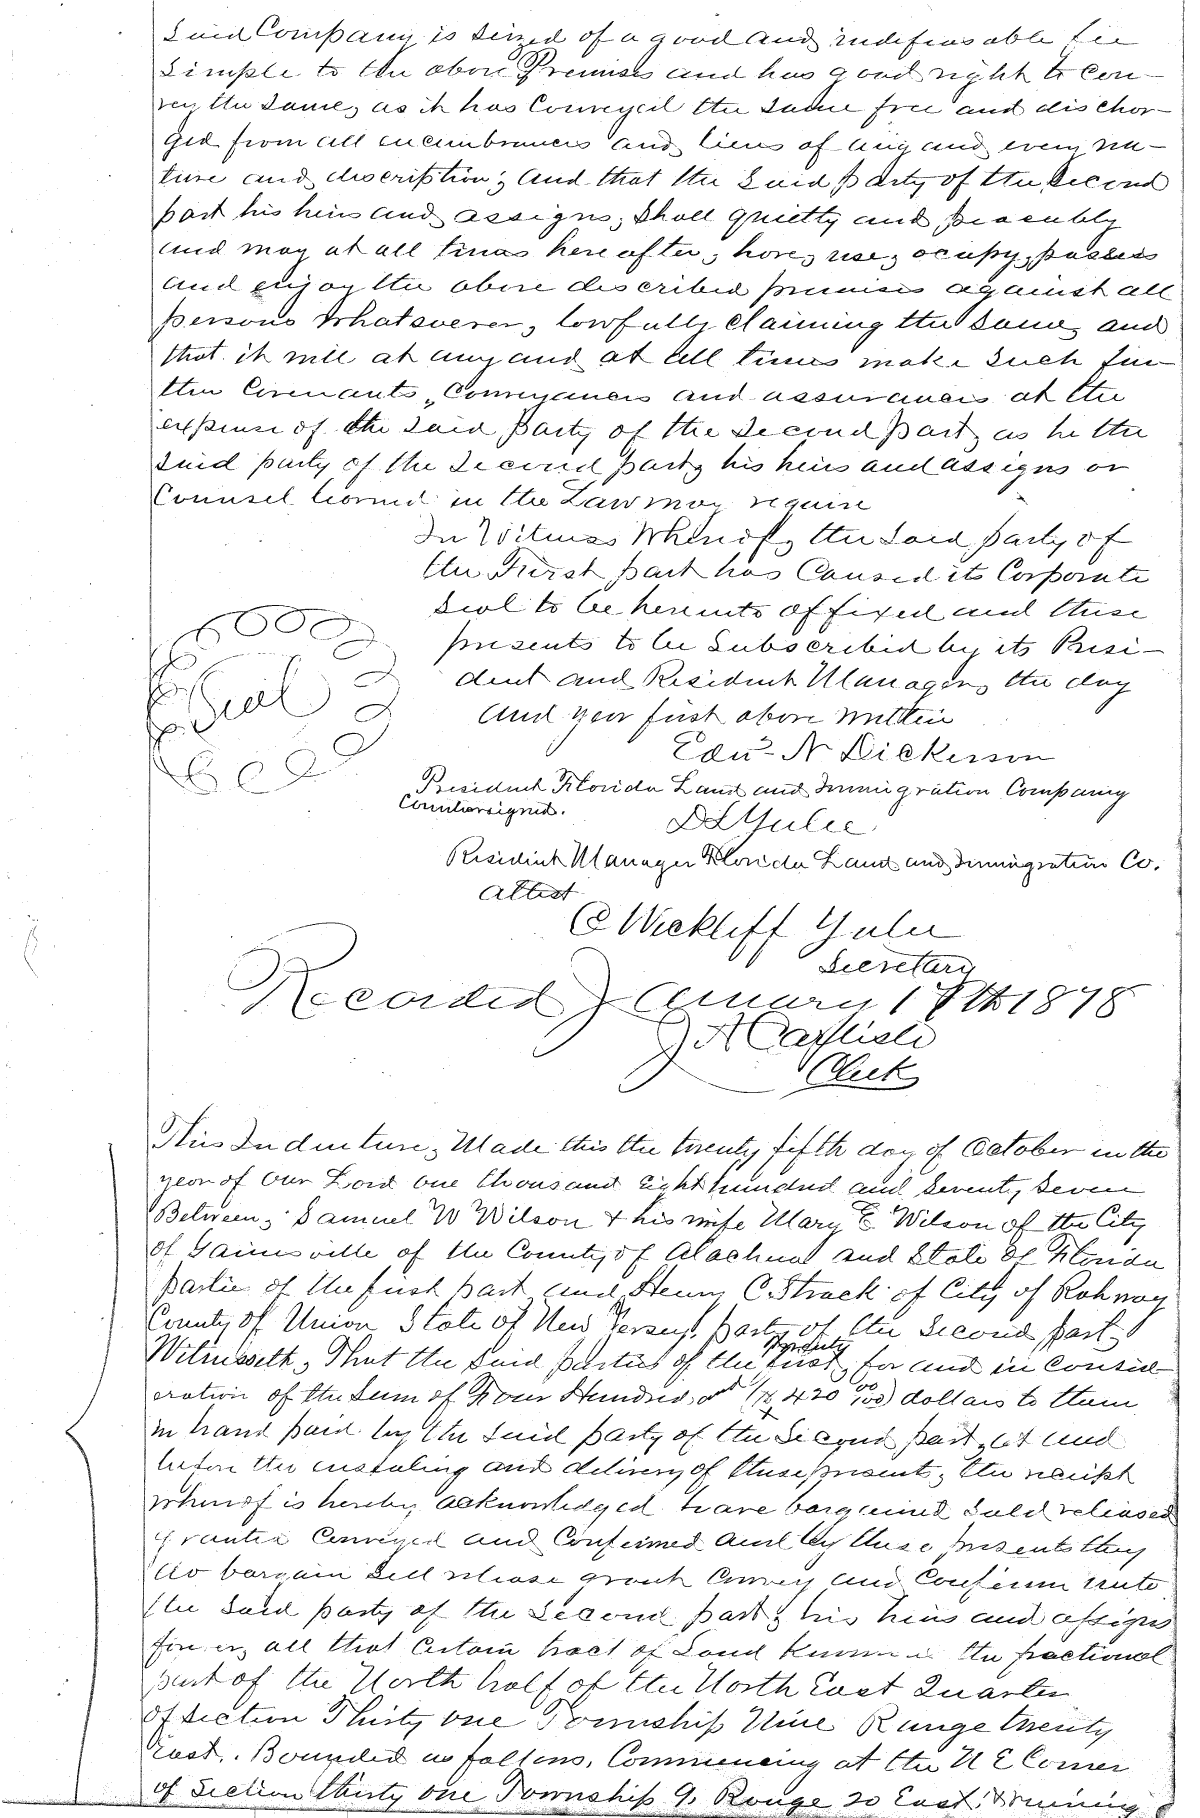 Said Company is seized of a good and indefeasable fee
Simple to the above Premises and has good right to Con-
vey the same, as it has Conveyed the same free and dischar-
ged from all incumbrances and liens of any and every na-
ture and discription; and that the Said party of the Second
part his heirs and assigns, shall quietly and peaceably
and may at all times hereafter, have, use, ocupy, possess
and enjoy the above described premises against all
persons Whatsoever, lawfully Claiming the Same, and
that it will at any and at all times make Such fur
ther Covenants, Conveyances and assurances at the
expense of the Said party of the Second part, as he the
Said party of the Second part, his heirs and assigns or
Counsel learned in the Law may require
In Witness Whereof, the Said party of
the First part has Caused its Corporate
Seal to be hereunto affixed and these
presents to be Subscribed by its Presi-
dent and Resident Manager, the day
and year first above written
Seal
Edw. N Dickerson
President Florida Land and Immigration Company
Countersigned.
D L Yulee
Resident Manager Florida Land and Immigration Co.
Attest
C Wickliff Yulee
Secretary
Recorded January 18th 1878
J A Carlisle
Clerk
This Indenture, Made this the twenty fifth day of October in the
year of Our Lord one thousand Eight hundred and Seventy Seven
Between, Samuel W Wilson & his wife Mary E. Wilson of the City
of Gainesville of the County of Alachua and State of Florida
partie of the first part and Henry C. Strack of City of Rahway
County of Union State of New Jersey, party of the Second part,
Witnesseth, That the Said parties of the first, for and in Consid
eration of the Sum of Four Hundred &twenty ($420 00/100) dollars to them
in hand paid by the Said party of the Second part, at and
before the ensealing and delivery of these presents, the receipt
whereof is hereby acknowledged have bargained Sold released
granted Conveyed and Confirmed and by these presents they
do bargain Sell release grant Convey and Confirm unto
the Said party of the Second part, his heirs and assigns
forever, all that Certain tract of Land known as the fractional
part of the North half of the North East Quarter
of Section Thirty one Township Nine Range twenty
East. Bounded as follows. Commencing at the N E Corner
of Section thirty one Township 9, Range 20 East, & running